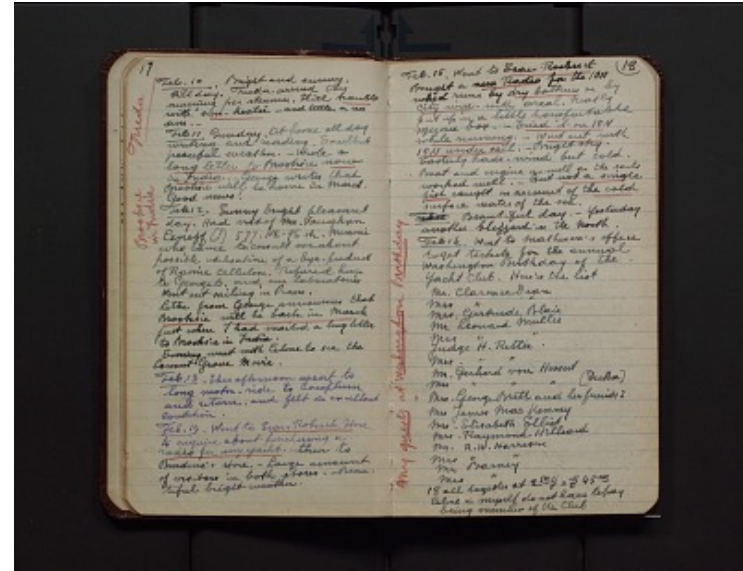 17
Feb. 10. Bright and sunny.
All day. Frieda arrived this
morning per steamer, that
with
are.
Feb. 11. Sunday. At home all day
writing and reading. Excellent
peaceful weather. - Wrote a
long letter to Brookie now
in India. George writes that
Brookie will be home in March.
Good news!
Feb. 12. Sunny bright pleasant
day. Had visit of Mrs.
577. N.E. 96 th. Miami
who came to consult me about
possible utilisation of a bye-product
of Ramie cellulose. Referred him
to George, and our laboratories
Went out sailing in Pram.
Letter from George announces that
Brookie will be back in March
just when I had mailed a long letter
to Brookie in India.
Evening went with Celine to see the
Coconut Grove Movie.
Feb. 13. This afternoon went to
long motor-ride to
and return, and felt in excellent
condition.
Feb. 14. Went to Sears Roebuck Store
to inquire about purchasing a
radio for my yacht. - then to
Burdine's store. - Large amount
of visitors in both stores. - Beau-
tiful bright weather.
Frieda
Brookie
India
18
Feb. 15. Went to Sears-Roebuck
Bought a new Radio for the ION
which runs by dry batteries or by
city wire with aerial. Neatly
put up in a little transportable
square box. - Tried it on ION
while running. - Went out with
ION under sail. - Bright sky.
Easterly trade-wind but cold.
Boat and engine as well as the sails
worked well. - But not a single
fish caught on account of the cold
surface water of the sea.
Beautiful day. - Yesterday
another blizzard in the North.
Feb. 16. Went to Matheson's office
to get tickets for the annual
Washington Birthday of the
Yacht Club. Here's the list
Mr. Clarence Dean
Mrs "
Mrs. Gertrude Blair
Mr Leonard
Mrs "
Judge H. Ritter
Mrs. "
Mr. Gerhard von
Mrs " "
Mrs. George Britt and her friends?
Mrs James Mac
Mrs. Elisabeth Elliot
Mrs. Raymond Hilliard
Mr. R.W. Harrison
Mrs "
Mr Barney
Mrs "
18 all together at 2.50 = $45.00
Celine or myself do not have to pay
being member of the Club
My guests at Washington Birthday